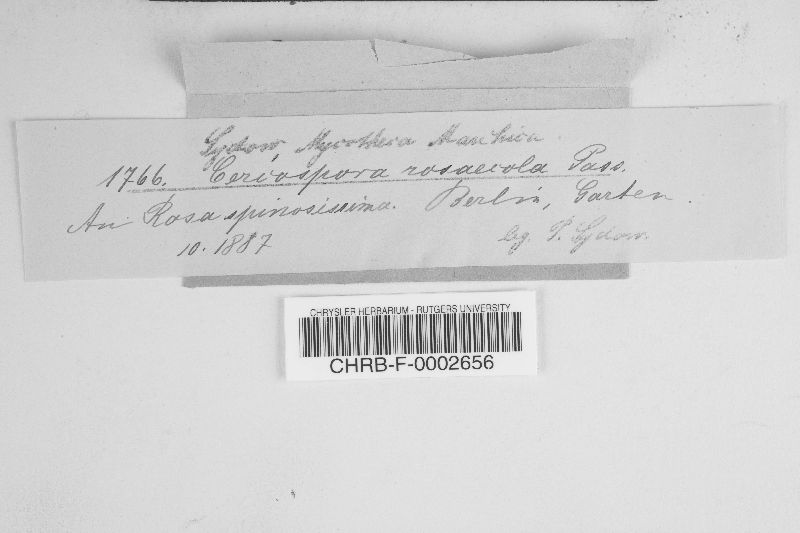 Sydow, Mycotheca Marchica.
1766. Cercospora rosaecola Pass.
An Rosa spinosissima. Berlin, Garten.
10. 1887 leg. P. Sydow.
CHRYSLER HERBARIUM - RUTGERS UNIVERSITY
CHRB-F-0002656